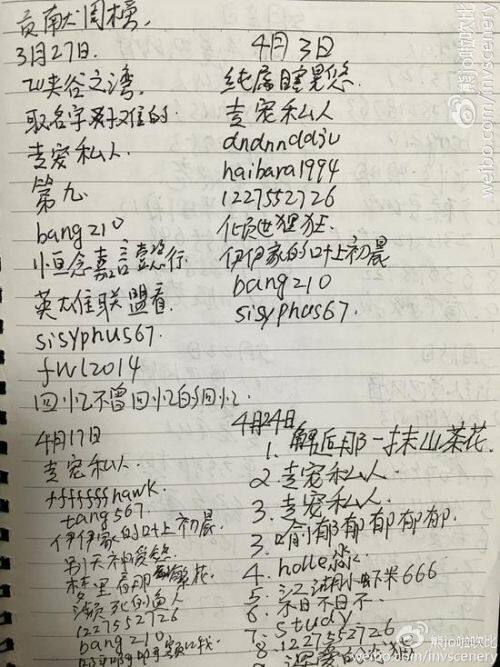 贡献周榜
3月27日.
峡谷之湾.
取名字好难的.
专宠私人.
第九
bang210
恒念嘉言懿行
英雄联盟看.
sisyphus67
fwl2014
回忆不曾回忆的回忆.
4月3日
纯属瞎晃悠.
专宠私人
dndnndd3u
haibara1994
1227552726
倾世狸狂.
伊伊家的叶上初晨
bang210
sisyphus67.
4月17日
专宠私人.
fffffffhawk
tang567.
伊伊家的叶上初晨
1227552726
bang210
4月24日
1. 邂逅那一抹山茶花.
2 专宠私人.
3. 专宠私人.
3. 喻郁郁郁郁郁.
4. holle
5. 江湖小虾米666
6. 不日不日不.
7. study
8. 1227552726
熊io啦啦比
weibo.com/invscenery
熊io啦啦比
weibo.com/invscenery